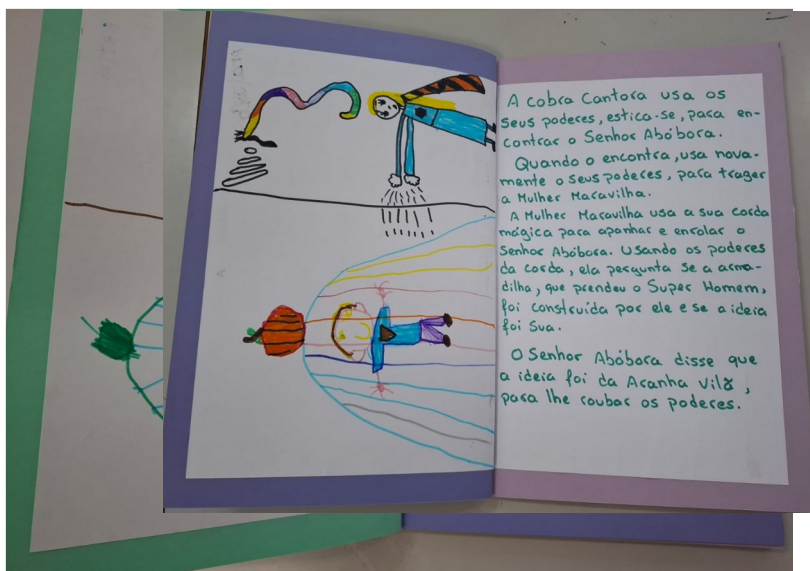 A cobra Cantora usa os
seus poderes, estica-se, para en-
contrar o Senhor Abóbora.
Quando o encontra, usa nova-
mente o seus poderes, para trager
a Mulher Maravilha.
A Mulher Maravilha usa a sua corda
mágica para apanhar e enrolar o
Senhor Abóbora. Usando os poderes
da corda, ela pergunta se a arma-
dilha, que prendeu o Super Homem,
foi construída por ele e se a ideia
foi sua.
O Senhor Abóbora disse que
a ideia foi da Aranha Vilã,
para lhe roubar os poderes.